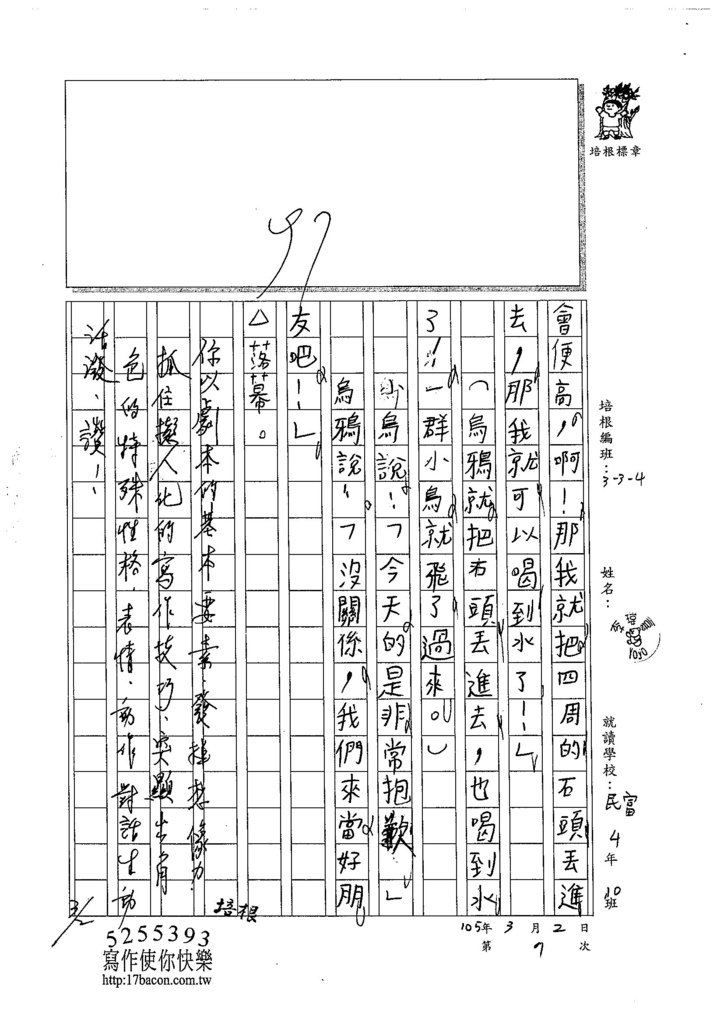 培根標章
培根編班：3-3-4
姓名：
就讀學校：民富 4年 10班
105年 3月 2日
第 7 次
97
會便高，啊！那我就把四周的石頭丟進
去，那我就可以喝到水了！」
（烏鴉就把石頭丟進去，也喝到水
了！一群小鳥就飛了過來。）
小鳥說：「今天的是非常抱歉」
烏鴉說：「沒關係，我們來當好朋
友吧！」
△落幕。
你以劇本的基本要素，發揮想像力，
抓住擬人化的寫作技巧、突顯出角
色的特殊性格，表情、動作對話生動
活潑、讚！
培根
3/2
5255393
寫作使你快樂
http:17bacon.com.tw